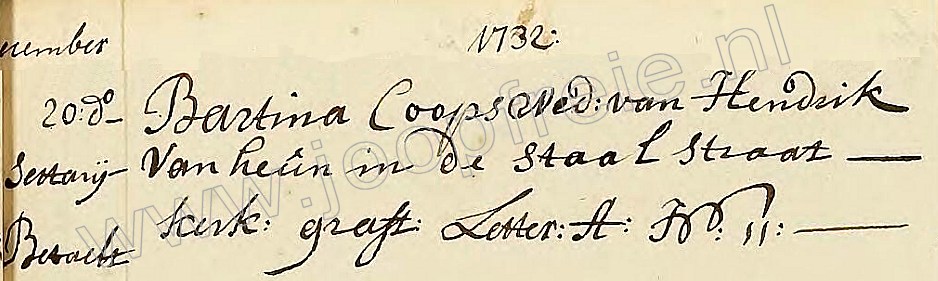 ecember 1732:
20: do Bartina Coops Wed: van Hendrik
van heun in de Staal Straat
Betaelt kerk: graft: Letter: A: No: 11:
www.joopfreie.nl